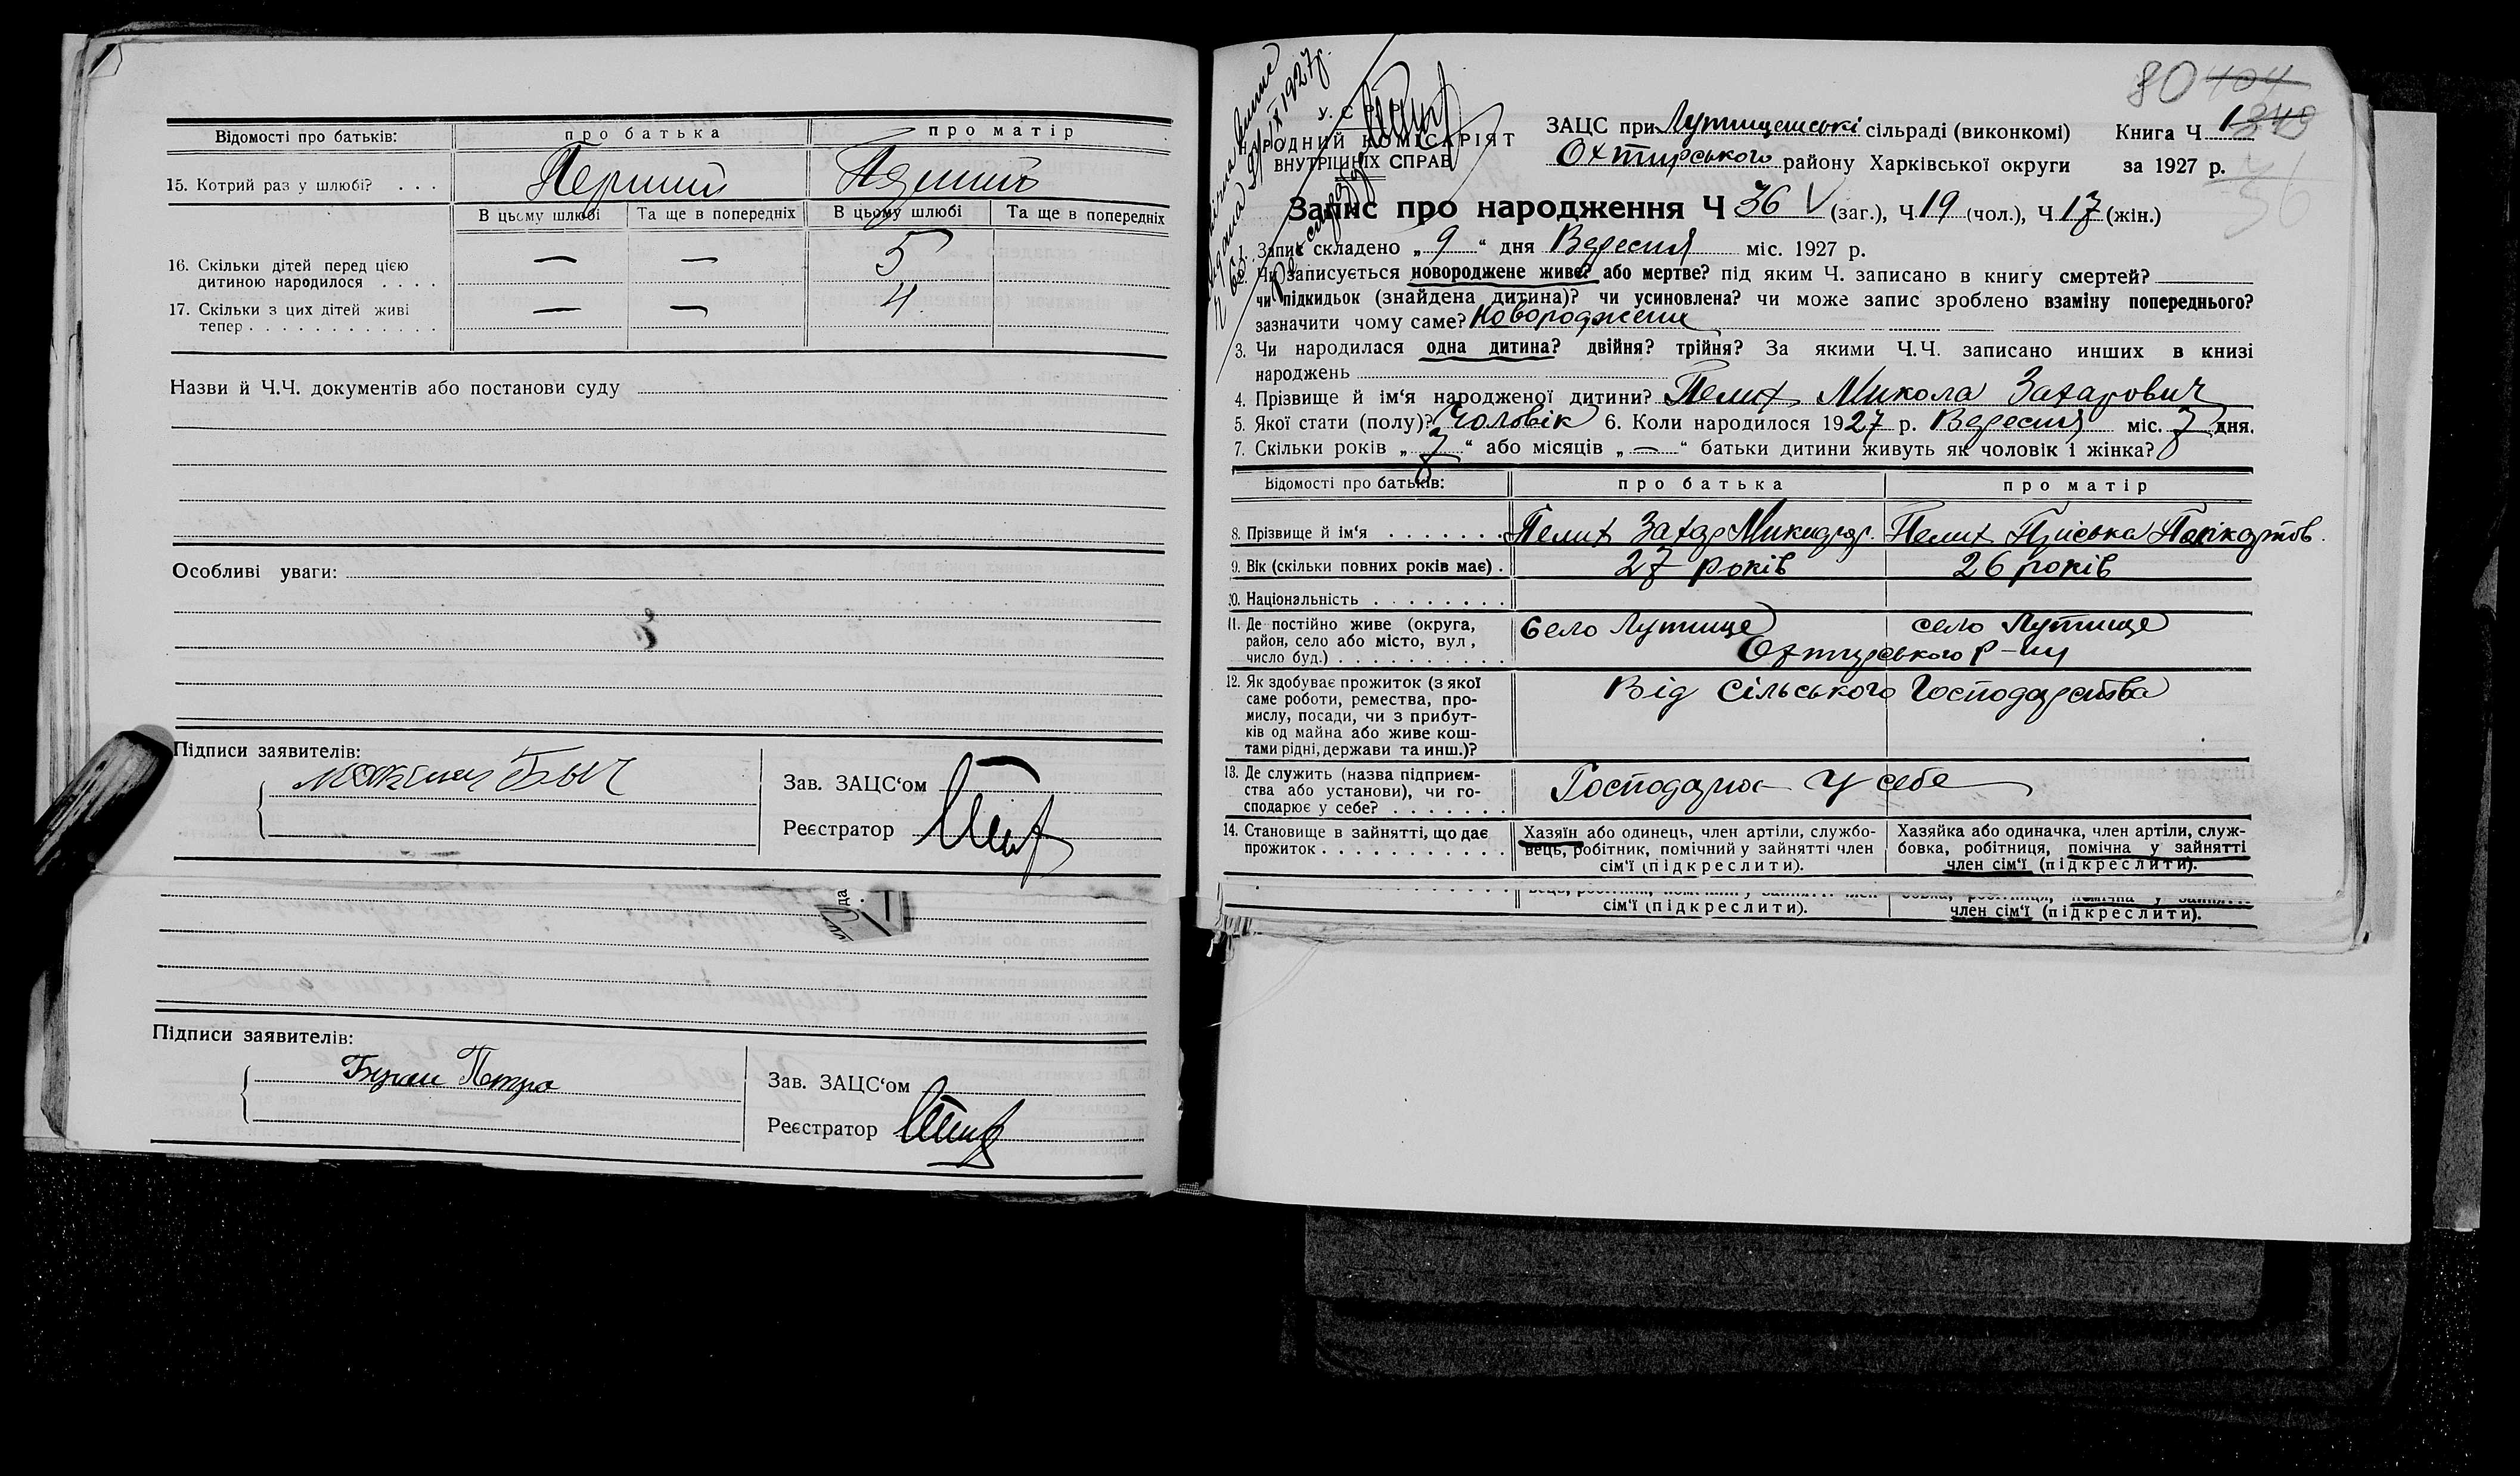 Відомості про батьків: про батька про матір
15. Котрий раз у шлюбі? . . . Перший Перший
В цьому шлюбі Та ще в попередніх В цьому шлюбі Та ще в попередніх
16. Скільки дітей перед цією
дитиною народилося . . . . — — 5
17. Скільки з цих дітей живі
тепер . . . . . . . . . . . . — — 4
Назви й Ч.Ч. документів або постанови суду
Особливі уваги:
Підписи заявителів:
Зав. ЗАЦС‘ом
Реєстратор
Підписи заявителів:
Петро
Зав. ЗАЦС‘ом
Реєстратор
80 404
1 349
36
У. С. Р. Р.
НАРОДНИЙ КОМІСАРІЯТ
ВНУТРІШНІХ СПРАВ
IX 1927р.
ЗАЦС при сільраді (виконкомі) Книга Ч 1
Охтирського району Харківської округи за 1927 р.
Запис про народження Ч 36 V (заг.), Ч 19 (чол.), Ч 17 (жін.)
1. Запис складено „ 9 “ дня Вересня міс. 1927 р.
Чи записується новороджене живе? або мертве? під яким Ч. записано в книгу смертей?
чи підкидьок (знайдена дитина)? чи усиновлена? чи може запис зроблено взаміну попереднього?
зазначити чому саме? Новороджене
3. Чи народилася одна дитина? двійня? трійня? За якими Ч.Ч. записано инших в книзі
народжень
4. Прізвище й ім‘я народженої дитини? Пелих Микола Захарович
5. Якої стати (полу)? Чоловік 6. Коли народилося 1927 р. Вересня міс. 7 дня.
7. Скільки років „ “ або місяців „ — “ батьки дитини живуть як чоловік і жінка?
Відомості про батьків: про батька про матір
8. Прізвище й ім‘я . . . . . . . Пелих Захар Микидор. Пелих Пріська
9. Вік (скільки повних років має) . 27 років 26 років
10. Національність . . . . . . . .
11. Де постійно живе (округа,
район, село або місто, вул,
число буд.) . . . . . . . . . . село Лутище село Лутище
Охтирського р-ну
12. Як здобуває прожиток (з якої
саме роботи, ремества, про-
мислу, посади, чи з прибут-
ків од майна або живе кош-
тами рідні, держави та инш.)? Від сільського господарства
13. Де служить (назва підприєм-
ства або установи), чи го-
сподарює у себе? . . . . . . . у себе
14. Становище в зайнятті, що дає
прожиток . . . . . . . . . . .
Хазяїн або одинець, член артіли, службо-
вець, робітник, помічний у зайнятті член
сім‘ї (підкреслити).
Хазяйка або одиначка, член артіли, служ-
бовка, робітниця, помічна у зайнятті
член сім‘ї (підкреслити).
сім‘ї (підкреслити).
член сім‘ї (підкреслити).